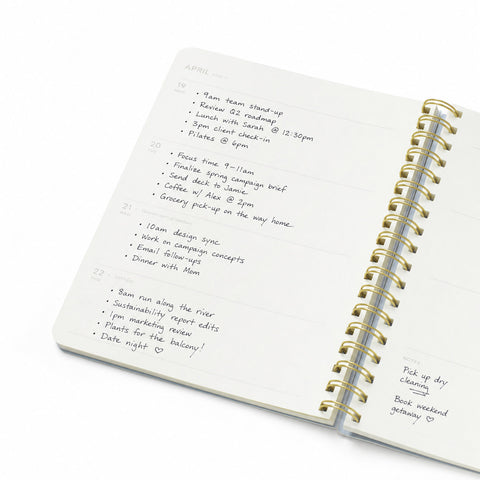 APRIL
19
• 9am team stand-up
• Review Q2 roadmap
• Lunch with Sarah @ 12:30pm
• 3pm client check-in
• Pilates @ 6pm
20
• Focus time 9-11am
• Finalize spring campaign brief
• Send deck to Jamie
• Coffee w/ Alex @ 2pm
• Grocery pick-up on the way home
21
• 10am design sync
• Work on campaign concepts
• Email follow-ups
• Dinner with Mom
22
• 8am run along the river
• Sustainability report edits
• 1pm marketing review
• Plants for the balcony!
• Date night ♡
NOTES
Pick up dry
cleaning
Book weekend
getaway ♡